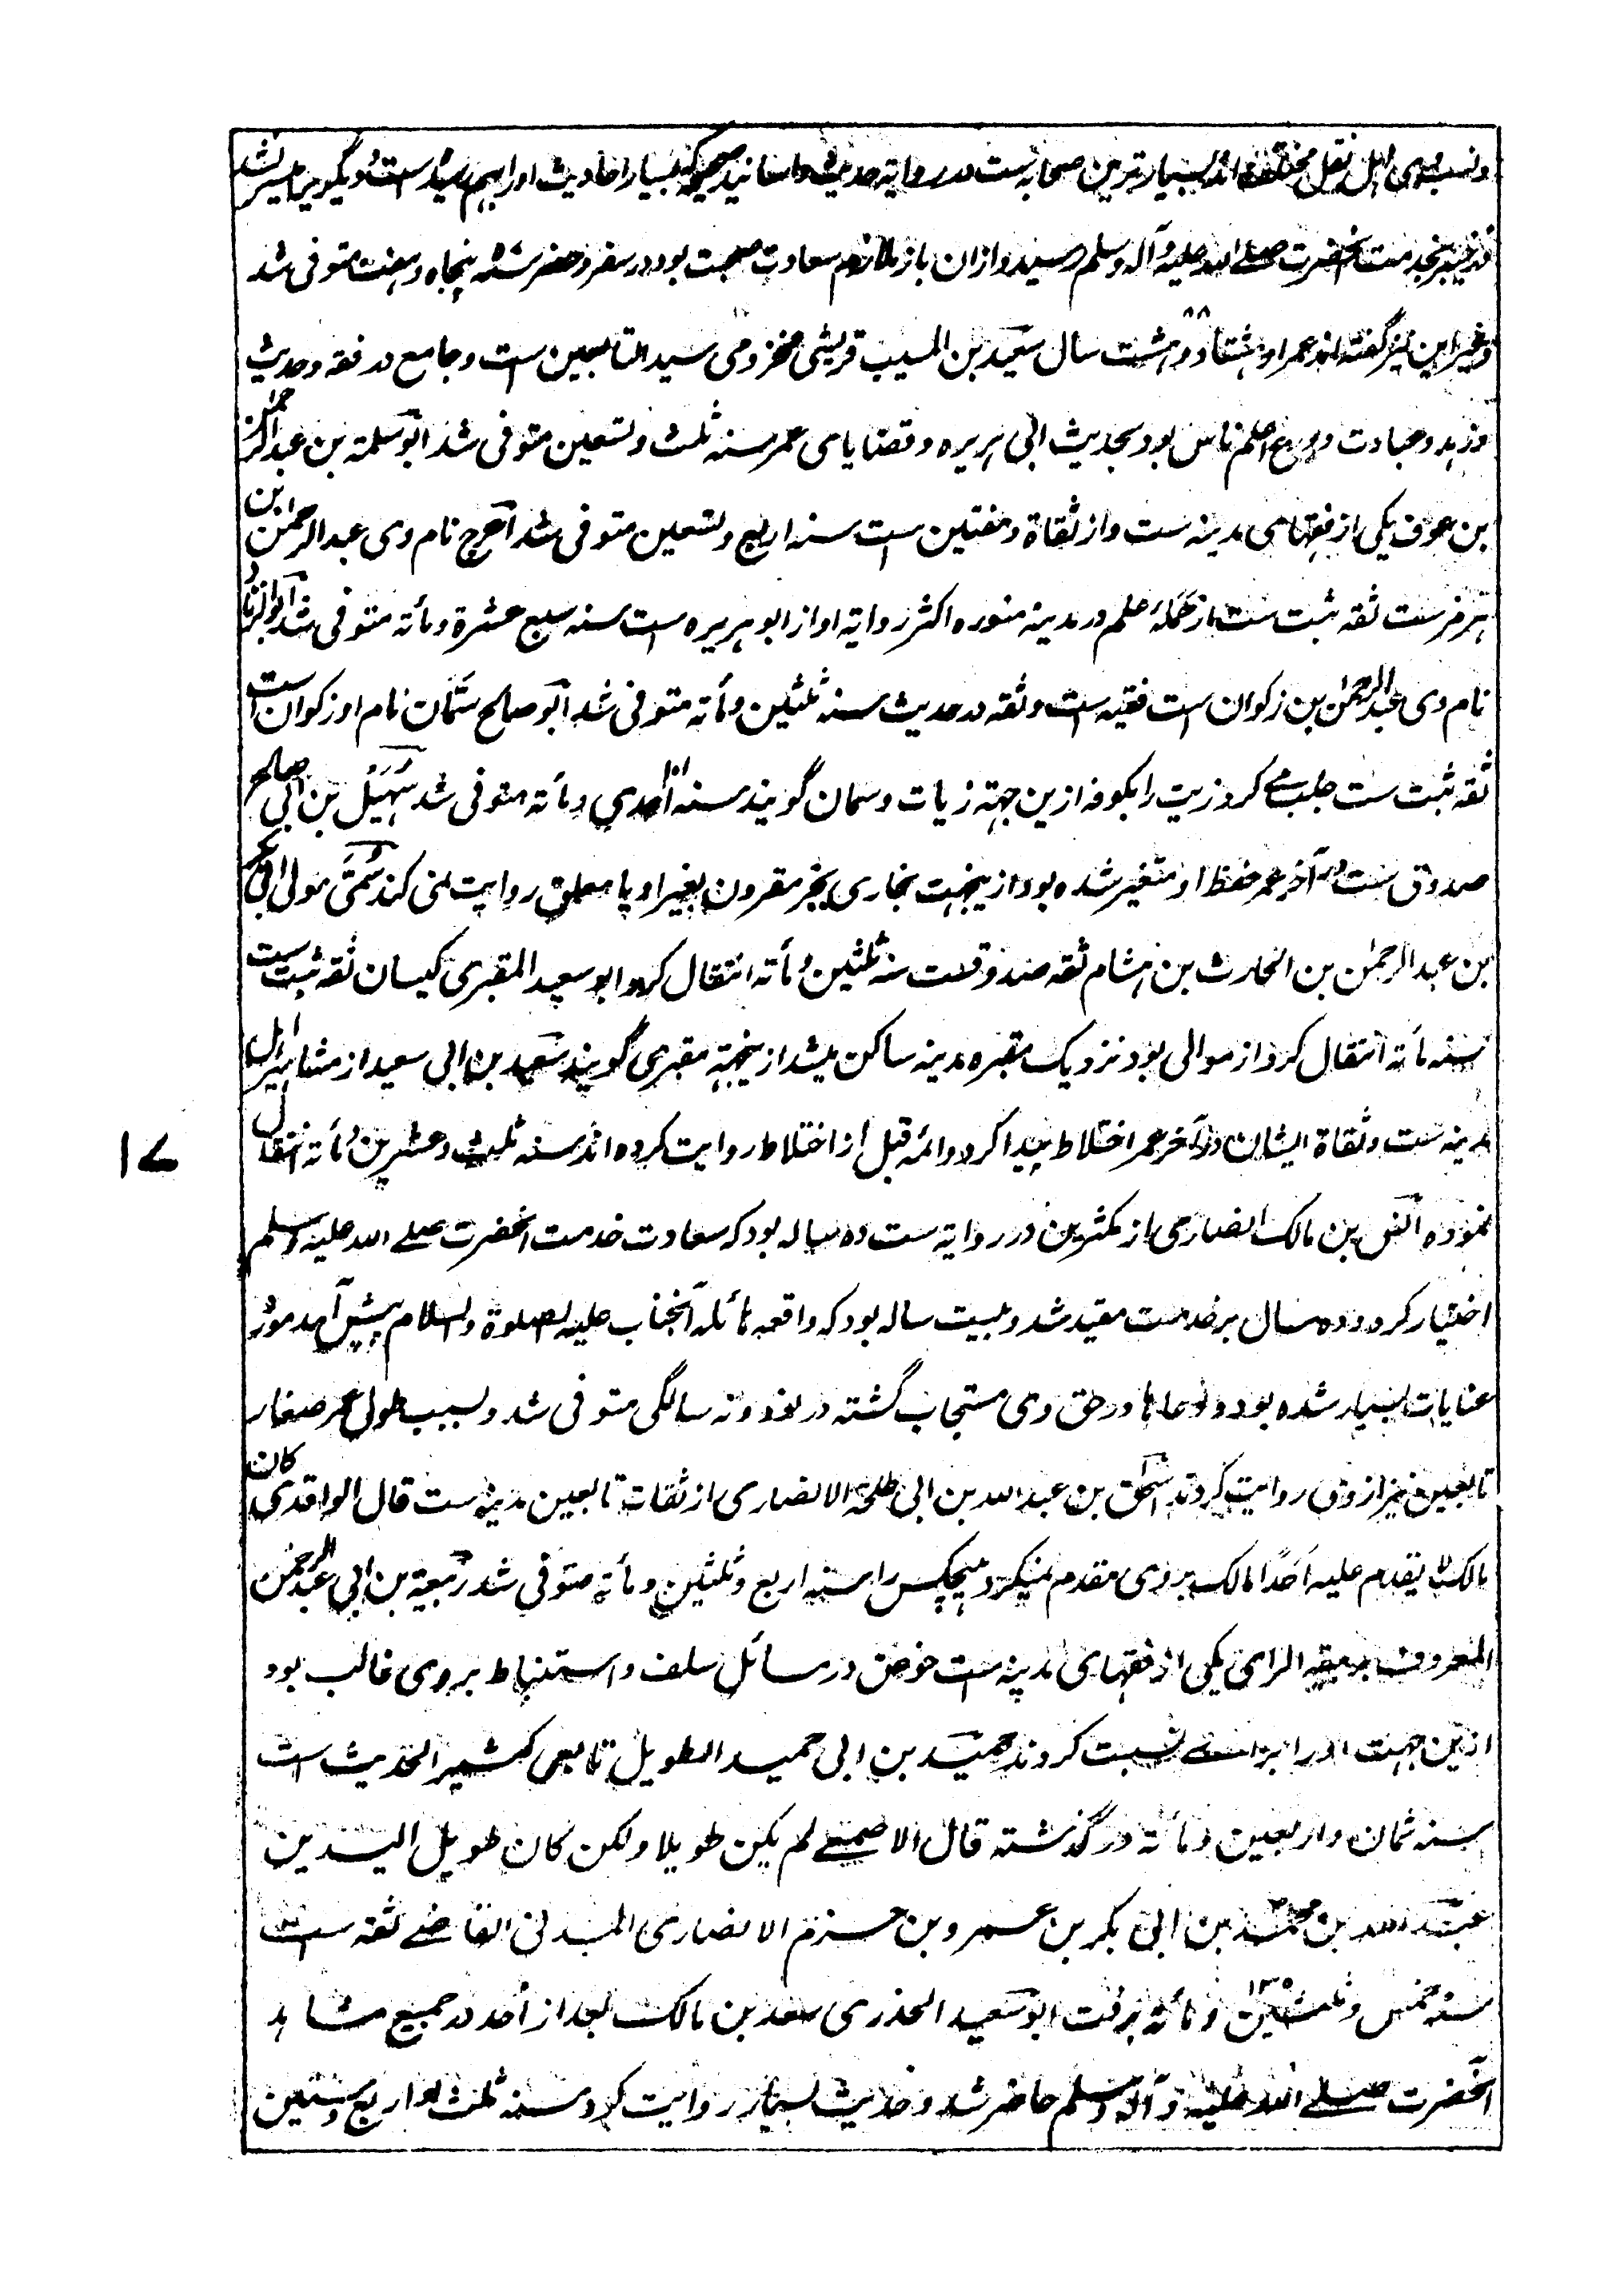 و نسب وی اهل نقل مختلف اند بسیارترین صحابه است در روایة حدیث و اسانید صحیحه بسیار احادیث او را بهم رسیده است و دیگویرا میسر نشد
خیبر بخدمت آنحضرت صلے الله علیه و آله وسلم رسید و ازان باز ملازم سعادت صحبت بود در سفر و حضر سنه پنجاه و هفت متوفی شد
و غیر این نیز گفته اند عمر او هشتاد و هشت سال سعید بن المسیب قریشی مخزومی سید التابعین ست و جامع در فقه و حدیث
و زهد و عبادت و ورع اعلم ناس بود بحدیث ابی هریره و قضایای عمر سنه ثلث و تسعین متوفی شد ابو سلمة بن عبد الرحمن
بن عوف یکی از فقهای مدینه ست و از ثقاة و مفتین ست سنه اربع و تسعین متوفی شد اعرج نام وی عبد الرحمن بن
هرمز ست ثقه ثبت ست از حملهٔ علم در مدینه منوره اکثر روایة او از ابو هریره ست سنه سبع عشرة و مأته متوفی شد ابو الزناد
نام وی عبد الرحمن بن زکوان ست فقیه ست و ثقه در حدیث سنه ثلثین و مأته متوفی شد ابو صالح سمان نام او زکوان است
ثقه ثبت ست جلب مے کرد زیت را بکوفه ازین جهة زیات و سمان گویند سنه احدی و مأته متوفی شد سهیل بن ابی صالح
صدوق ست در آخر عمر حفظ او متغیر شده بود ازینجهت بخاری بجز مقرون بغیر او یا معلق روایت نمی کند سمی مولی ابی بکر
بن عبد الرحمن بن الحارث بن هشام ثقه صدوق ست سنه ثلثین و مأته انتقال کرد ابو سعید المقبری کیسان ثقه ثبت ست
سنه مأته انتقال کرد از موالی بود نزدیک مقبره مدینه ساکن میشد ازینجهة مقبری گویند سعید بن ابی سعید از مشاهیر اهل
مدینه ست و ثقاة ایشان در آخر عمر اختلاط پیدا کرد و ائمه قبل از اختلاط روایت کرده اند سنه ثلث و عشرین و مأته انتقال
نموده انس بن مالک انصاری از مکثرین در روایة ست ده ساله بود که سعادت خدمت انحضرت صلے الله علیه وسلم
اختیار کرد و ده سال بر خدمت مقید شد و بیست ساله بود که واقعه هائله آنجناب علیه الصلوة والسلام پیش آمد مورد
عنایات بسیار شده بود و دعاها در حق وی مستجاب گشته در نود و نه سالگی متوفی شد و بسبب طول عمر صغار
تابعین نیز از وی روایت کردند اسحق بن عبد الله بن ابی طلحة الانصاری از ثقات تابعین مدینه ست قال الواقدی کان
مالک لا یقدم علیه احدا مالک بر وی مقدم نمیکرد هیچکس را سنه اربع و ثلثین و مأته متوفی شد ربیعة بن ابی عبد الرحمن
المعروف بربیعة الرای یکی از فقهای مدینه ست خوض در مسائل سلف و استنباط بر وی غالب بود
ازین جهت او را برائے نسبت کردند حمید بن ابی حمید الطویل تابعی کثیر الحدیث ست
سنه ثمان و اربعین و مأته در گذشته قال الاصمعے لم یکن طویلا ولکن کان طویل الیدین
عبد الله بن محمد بن ابی بکر بن عمرو بن حزم الانصاری المدنی القاضے ثقه ست
سنه خمس و ثلثین ۱۳۵ و مأته برفت ابو سعید الخدری سعد بن مالک بعد از احد در جمیع مشاهد
آنحضرت صلے الله علیه و آله وسلم حاضر شد و حدیث بسیار روایت کرد سنه ثلث او اربع و ستین
۱۷